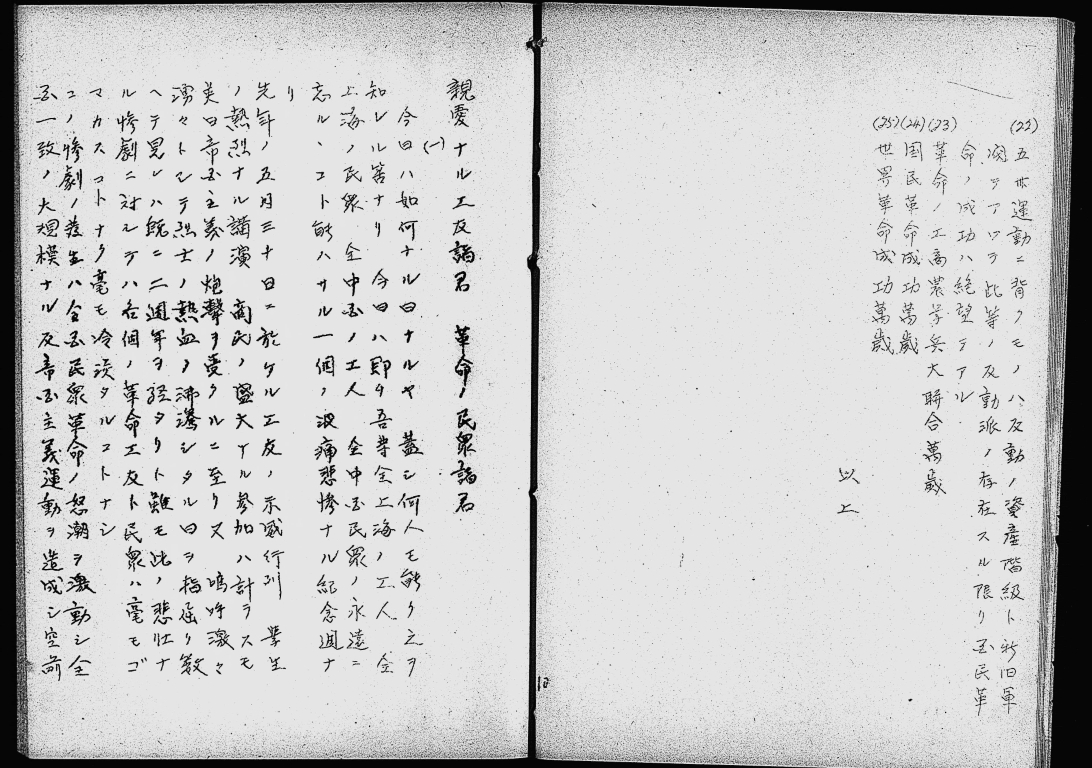 (22) 五卅運動ニ背クモノハ反動ノ資産階級ト新旧軍
閥デアロヲ此等ノ反動派ノ存在スル限リ国民革
命ノ成功ハ絶望デアル
(23) 革命ノ工商農学兵大聯合萬歳
(24) 国民革命成功萬歳
(25) 世界革命成功萬歳
以上
親愛ナル工友諸君 革命ノ民衆諸君
(一)
今日ハ如何ナル日ナルヤ 蓋シ何人モ能ク之ヲ
知レル筈ナリ 今日ハ即チ吾等全上海ノ工人 全
上海ノ民衆 全中国ノ工人 全中国民衆ノ永遠ニ
忘ルヽコト能ハサル一個ノ沈痛悲惨ナル紀念週ナ
リ
先年ノ五月三十日ニ於ケル工友ノ示威行列 学生
ノ熱烈ナル講演 商民ノ盛大ナル参加ハ計ラスモ
英日帝国主義ノ炮聲ヲ受クルニ至リ又 嗚呼激々
湧々トシテ烈士ノ熱血ノ沸騰シタル日ヲ指屈リ数
ヘテ見レハ既ニ二週年ヲ経タリト雖モ此ノ悲壮ナ
ル惨劇ニ対シテハ各個ノ革命工友ト民衆ハ毫モゴ
マカスコトナク毫モ冷淡タルコトナシ
コノ惨劇ノ発生ハ全国民衆革命ノ怒潮ヲ激動シ全
国一致ノ大規模ナル反帝国主義運動ヲ造成シ空前